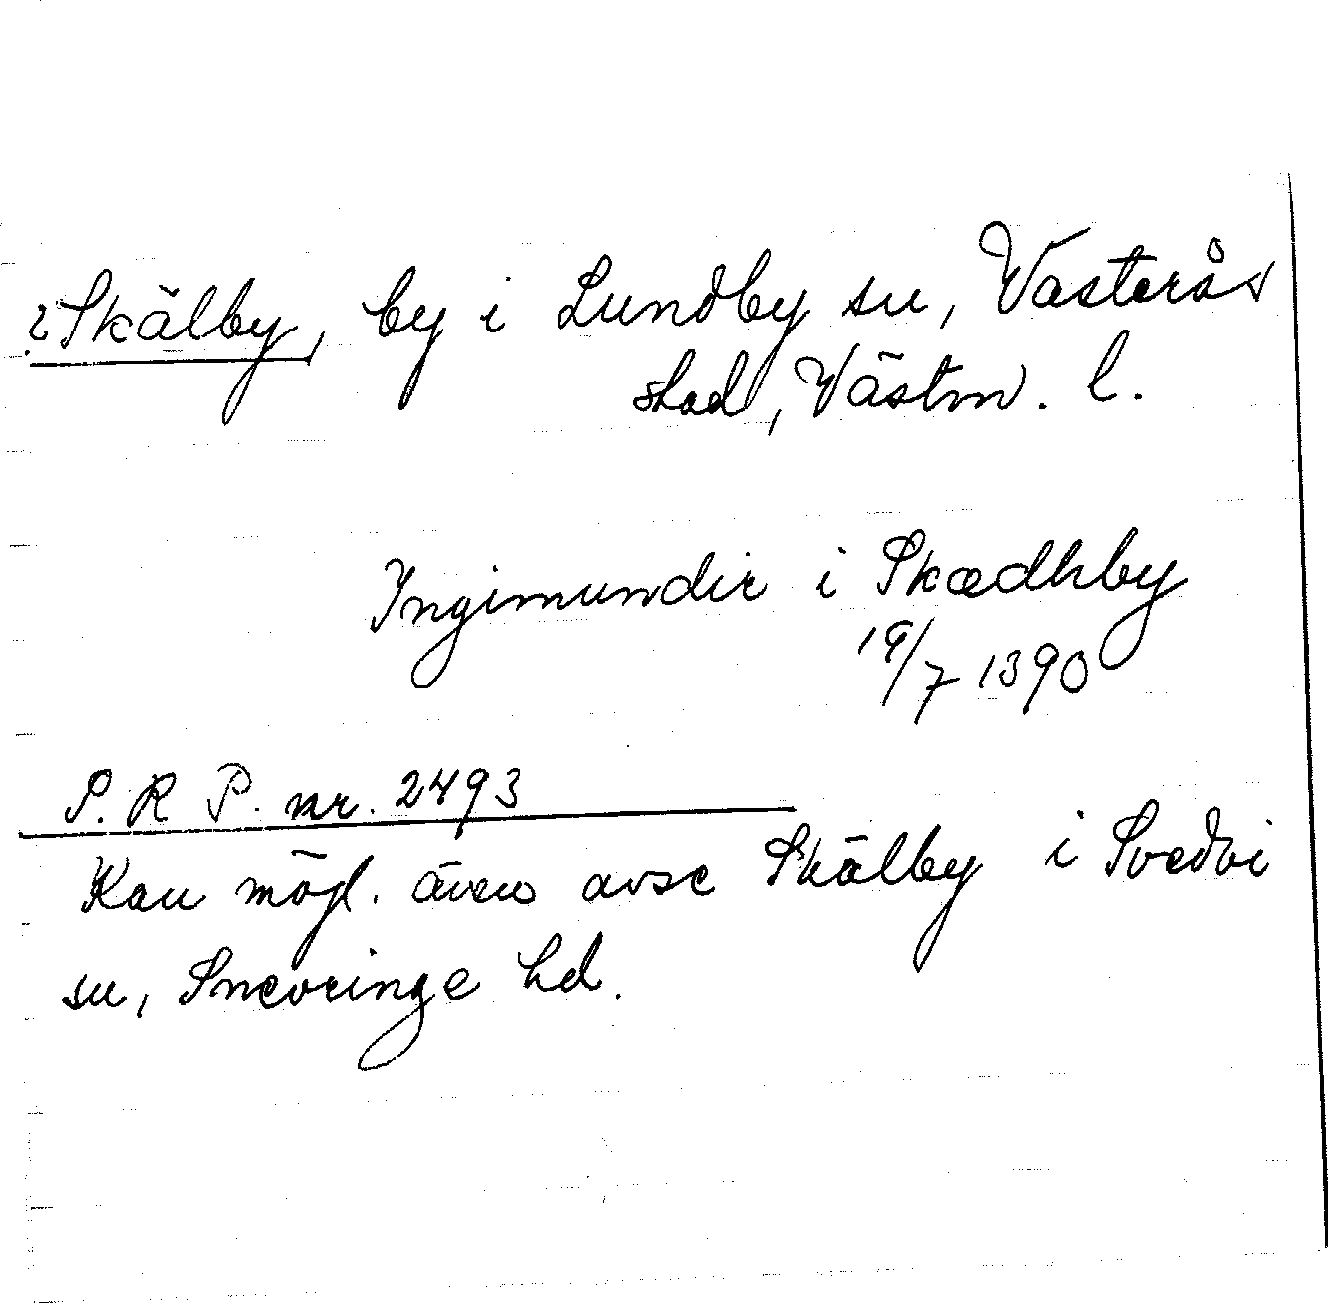 ? Skälby, by i Lundby sn, Västerås
stad, Västm. l.
Ingimundir i Skædhby
19/7 1390
S. R P. nr. 2493
Kan möjl. även avse Skälby i Svedvi
sn, Snevringe hd.